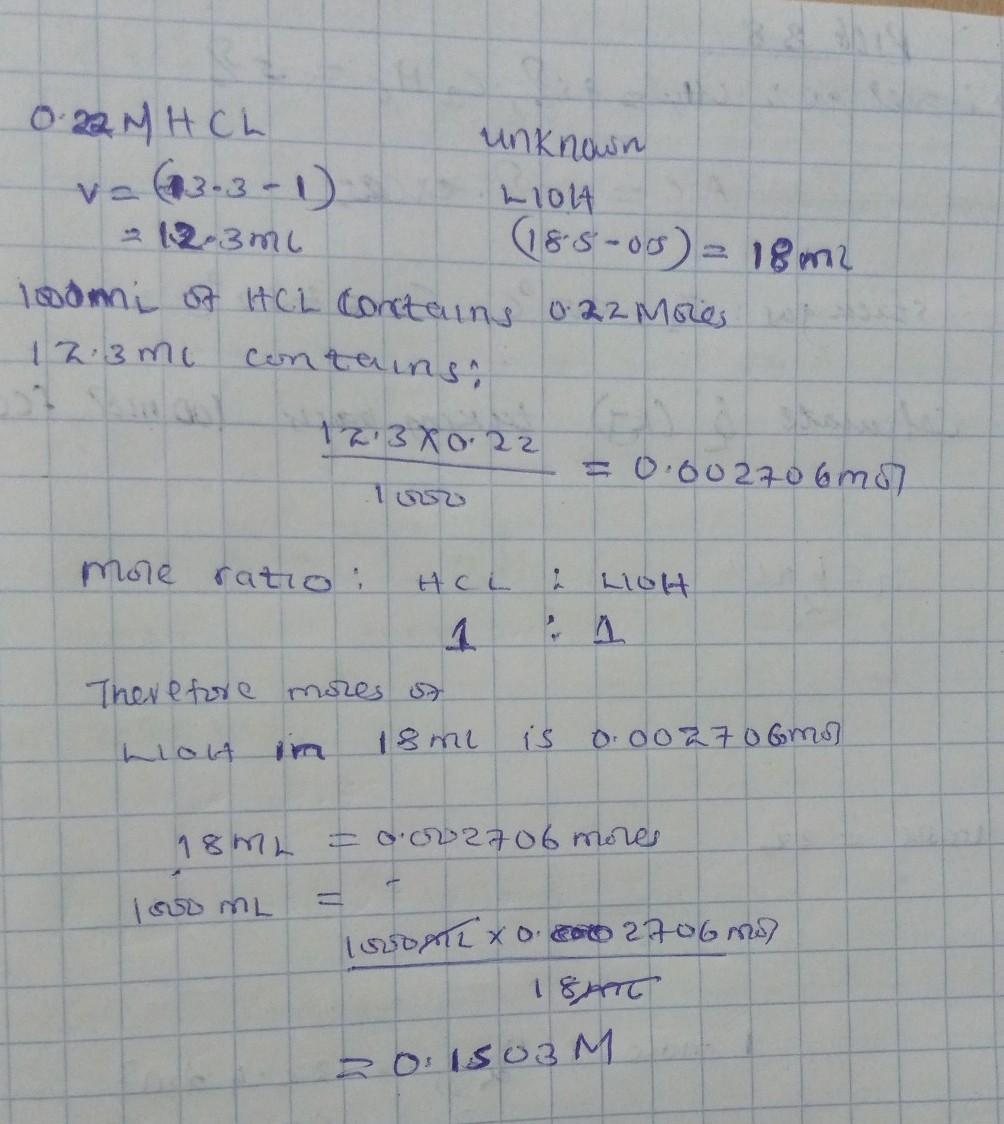 0.22M HCL
unknown
V = (13.3 - 1)
LIOH
= 12.3ml
(18.5-05) = 18ml
1000ml of HCL contains 0.22 Moles
12.3ml contains:
12.3 X 0.22
= 0.002706mol
1000
Mole ratio: HCL : LIOH
1 : 1
Therefore moles of
LIOH in 18ml is 0.002706mol
18mL = 0.002706 moles
1000mL =
1000ml x 0.002706mol
18ml
= 0.1503M